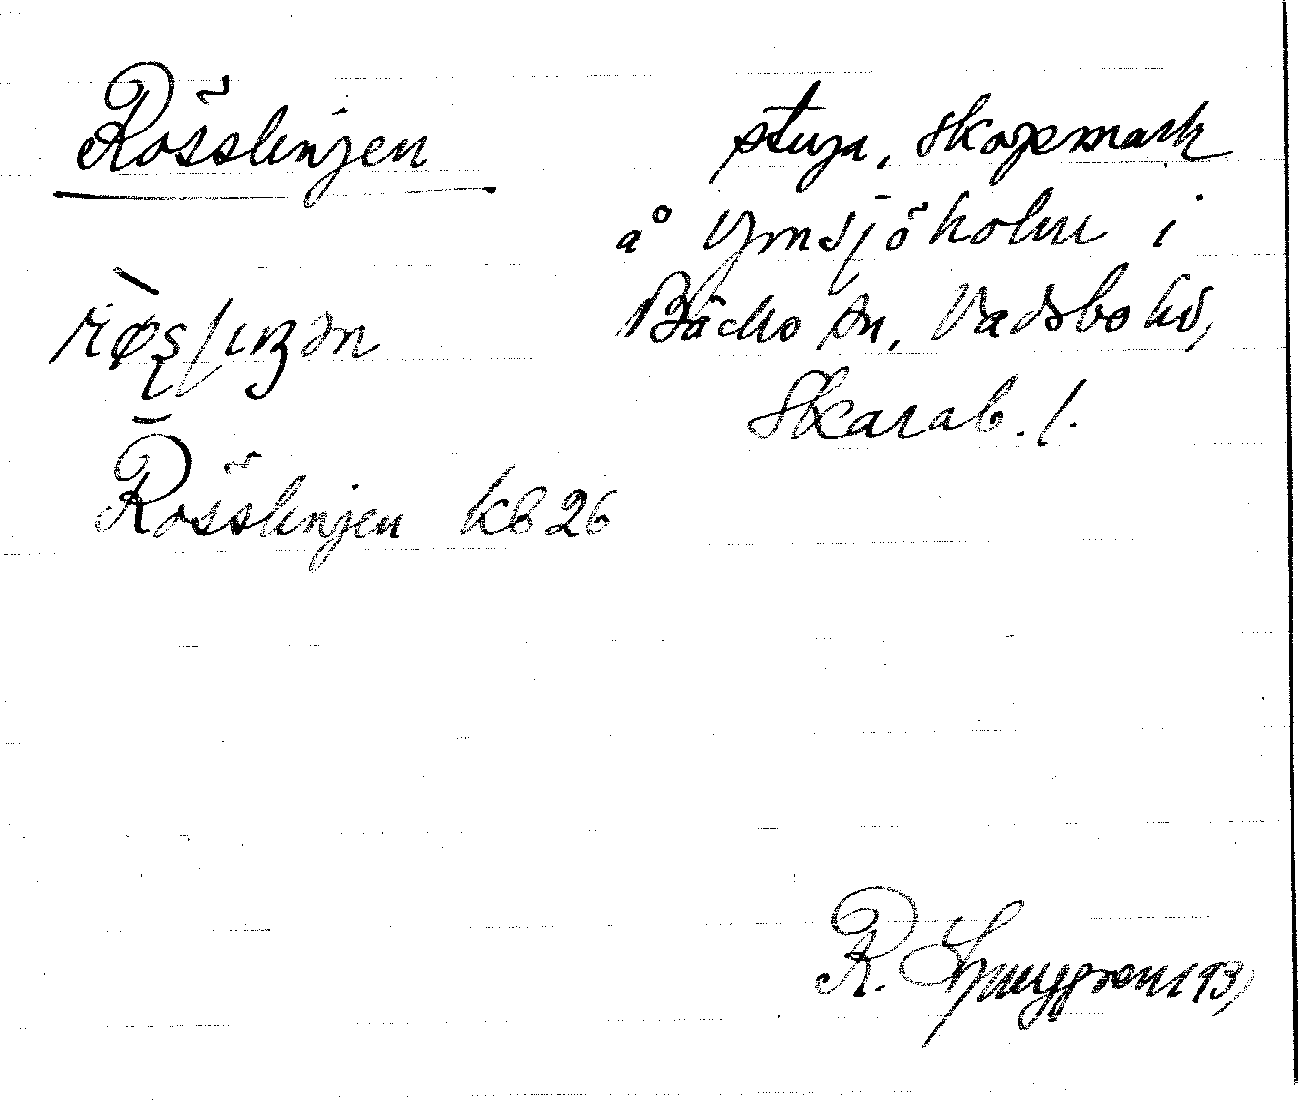 Rösslinjen
stuga, skogsmark
å Ymsjöholm i
Bäcks sn, Vadsbo hd,
Skarab. l.
Rösslinjen kb 26
R. Ljunggren 193